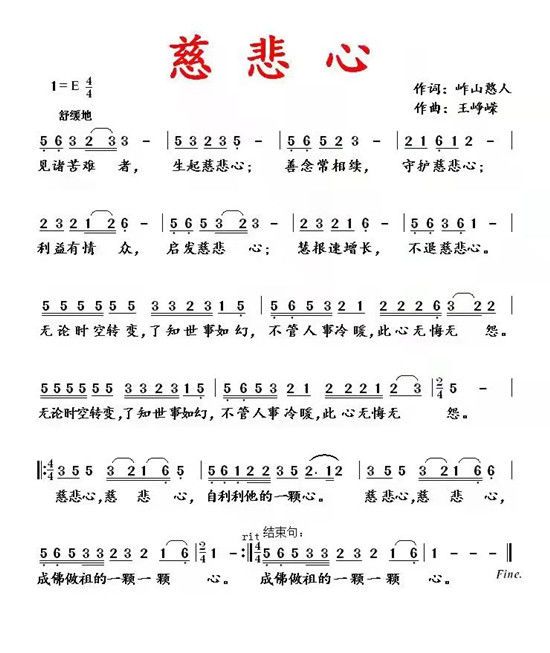 慈悲心
1=E 4/4
作词：岞山憨人
作曲：王峥嵘
舒缓地
5 6 3 2 3 3 - | 5 3 2 3 5 - | 5 6 5 3 6 - | 2 1 6 1 2 - |
见诸苦难者，生起慈悲心；善念常相续，守护慈悲心；
2 3 2 1 2 6 - | 5 6 5 3 2 3 - | 2 3 2 1 6 - | 5 6 3 6 1 - |
利益有情众，启发慈悲心；慧根速增长，不退慈悲心。
5 5 5 5 5 5 3 3 2 3 1 5 | 5 6 5 3 2 1 2 2 2 6 3 2 2 |
无论时空转变，了知世事如幻，不管人事冷暖，此心无悔无怨。
5 5 5 5 5 5 3 3 2 3 1 5 | 5 6 5 3 2 1 2 2 2 2 1 2 3 | 2/4 5 - |
无论时空转变，了知世事如幻，不管人事冷暖，此心无悔无怨。
4/4 3 5 5 3 2 1 6 5 | 5 6 1 2 2 3 5 2· 1 2 | 3 5 5 3 2 1 6 6 |
慈悲心，慈悲心，自利利他的一颗心。慈悲心，慈悲心，
rit 结束句：
5 6 5 3 3 2 3 2 1 6 | 2/4 1 - :| 4/4 5 6 5 3 3 2 3 2 1 6 | 1 - - - ‖
成佛做祖的一颗一颗心。成佛做祖的一颗一颗心。
Fine.